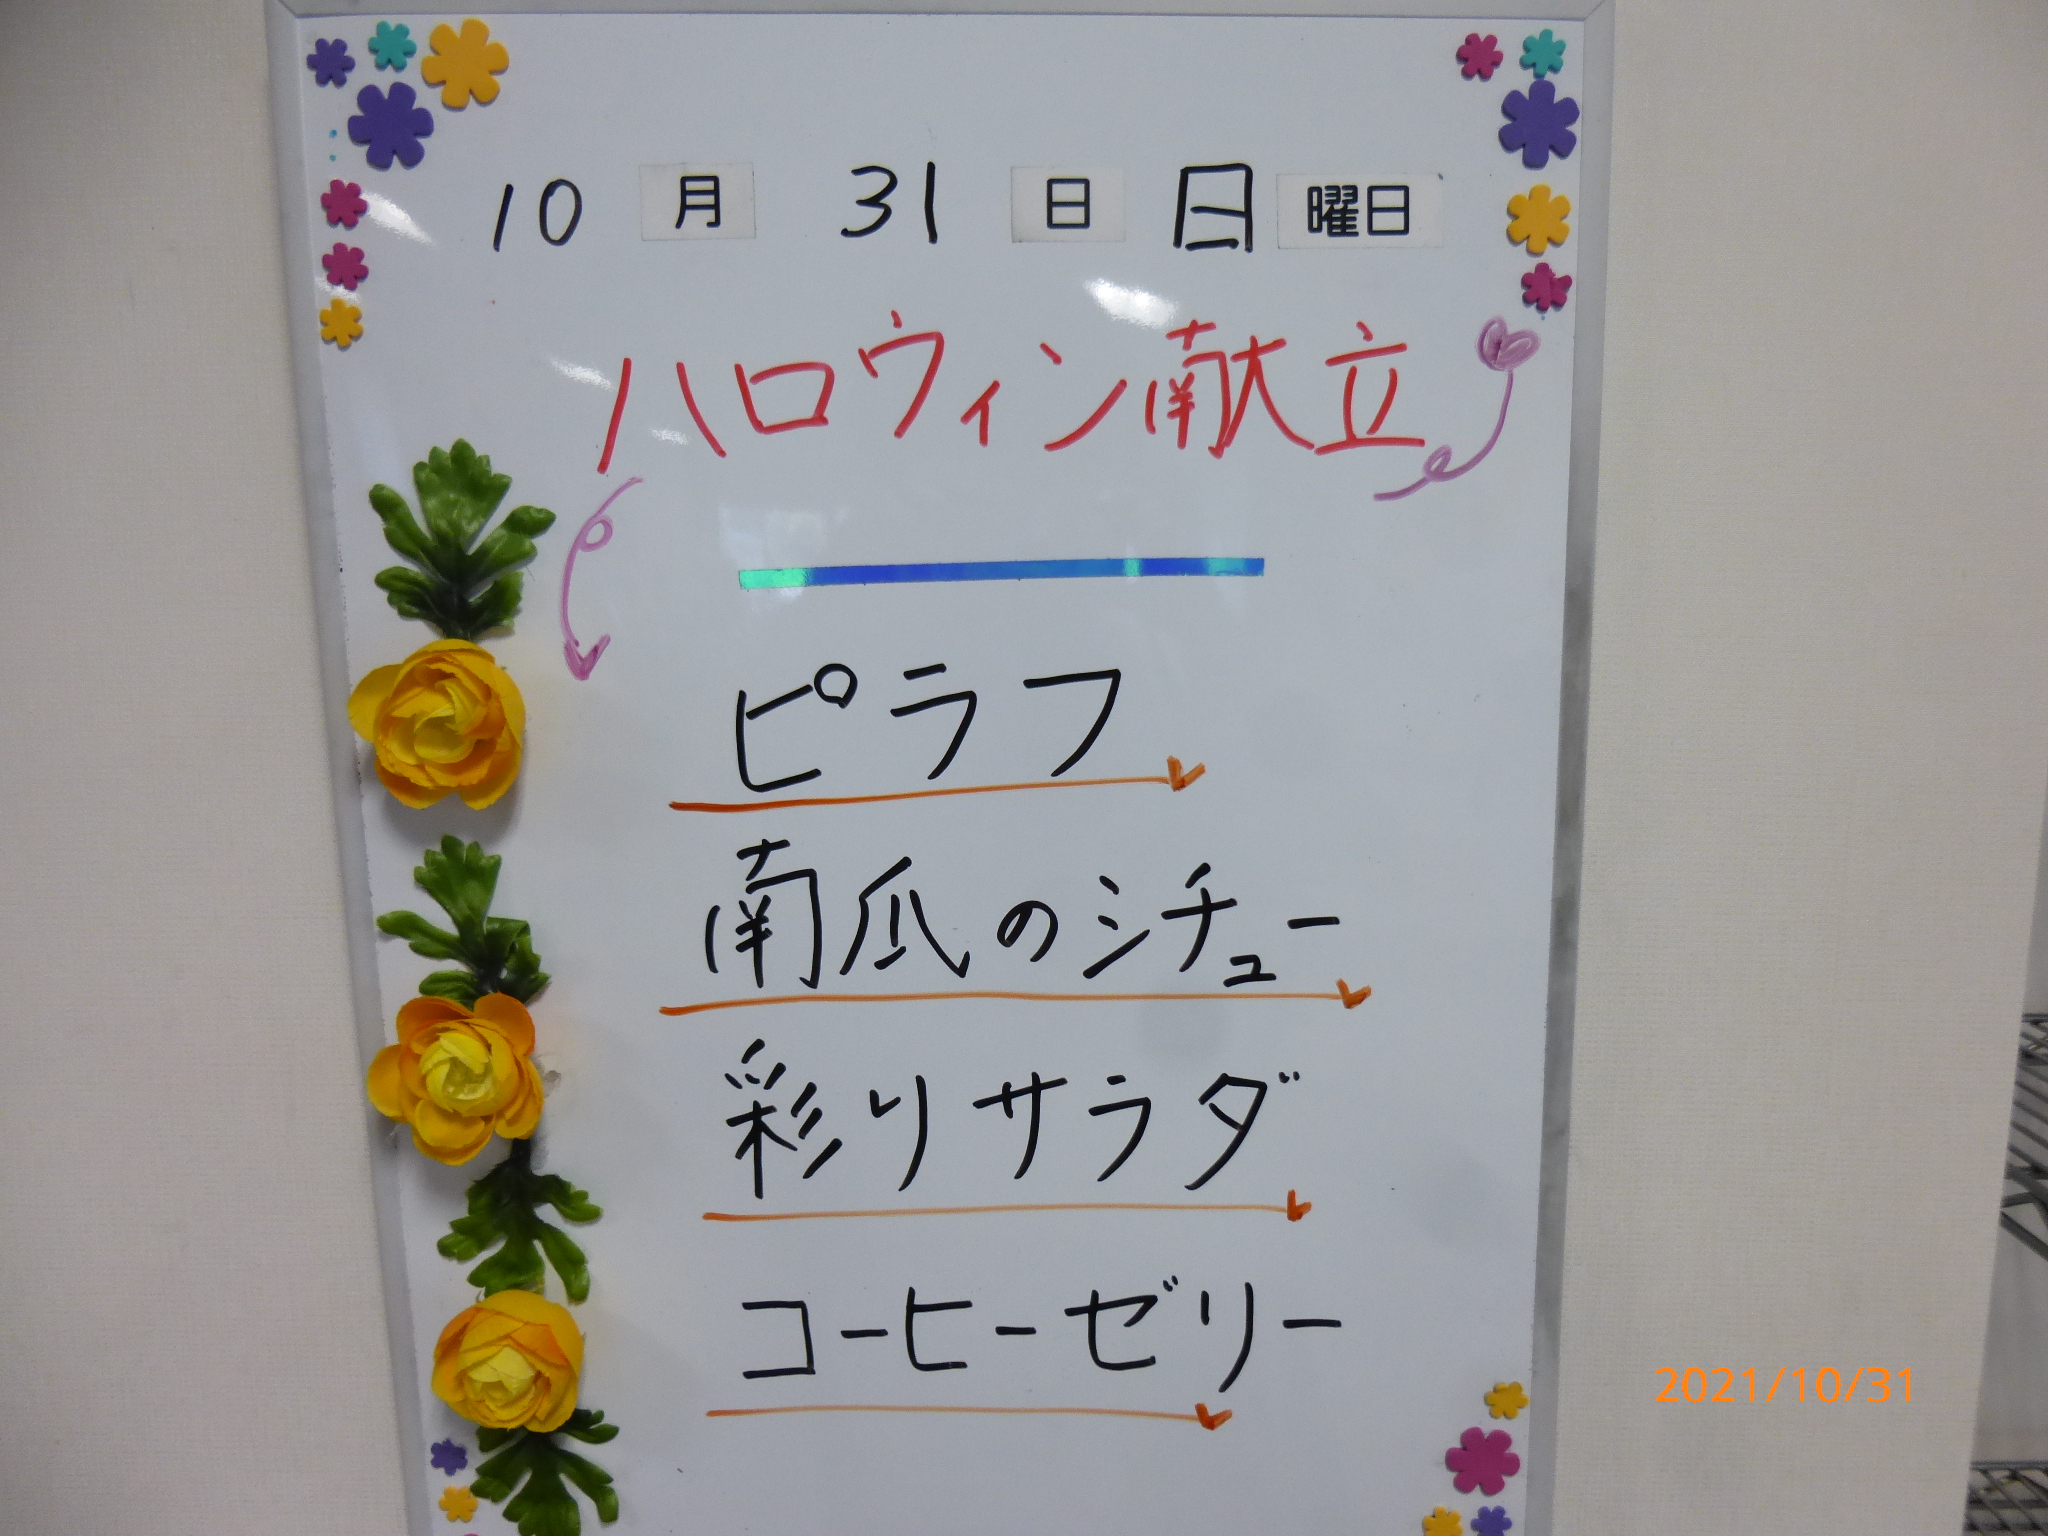 10月31日日曜日
ハロウィン献立
ピラフ
南瓜のシチュー
彩りサラダ
コーヒーゼリー
2021/10/31